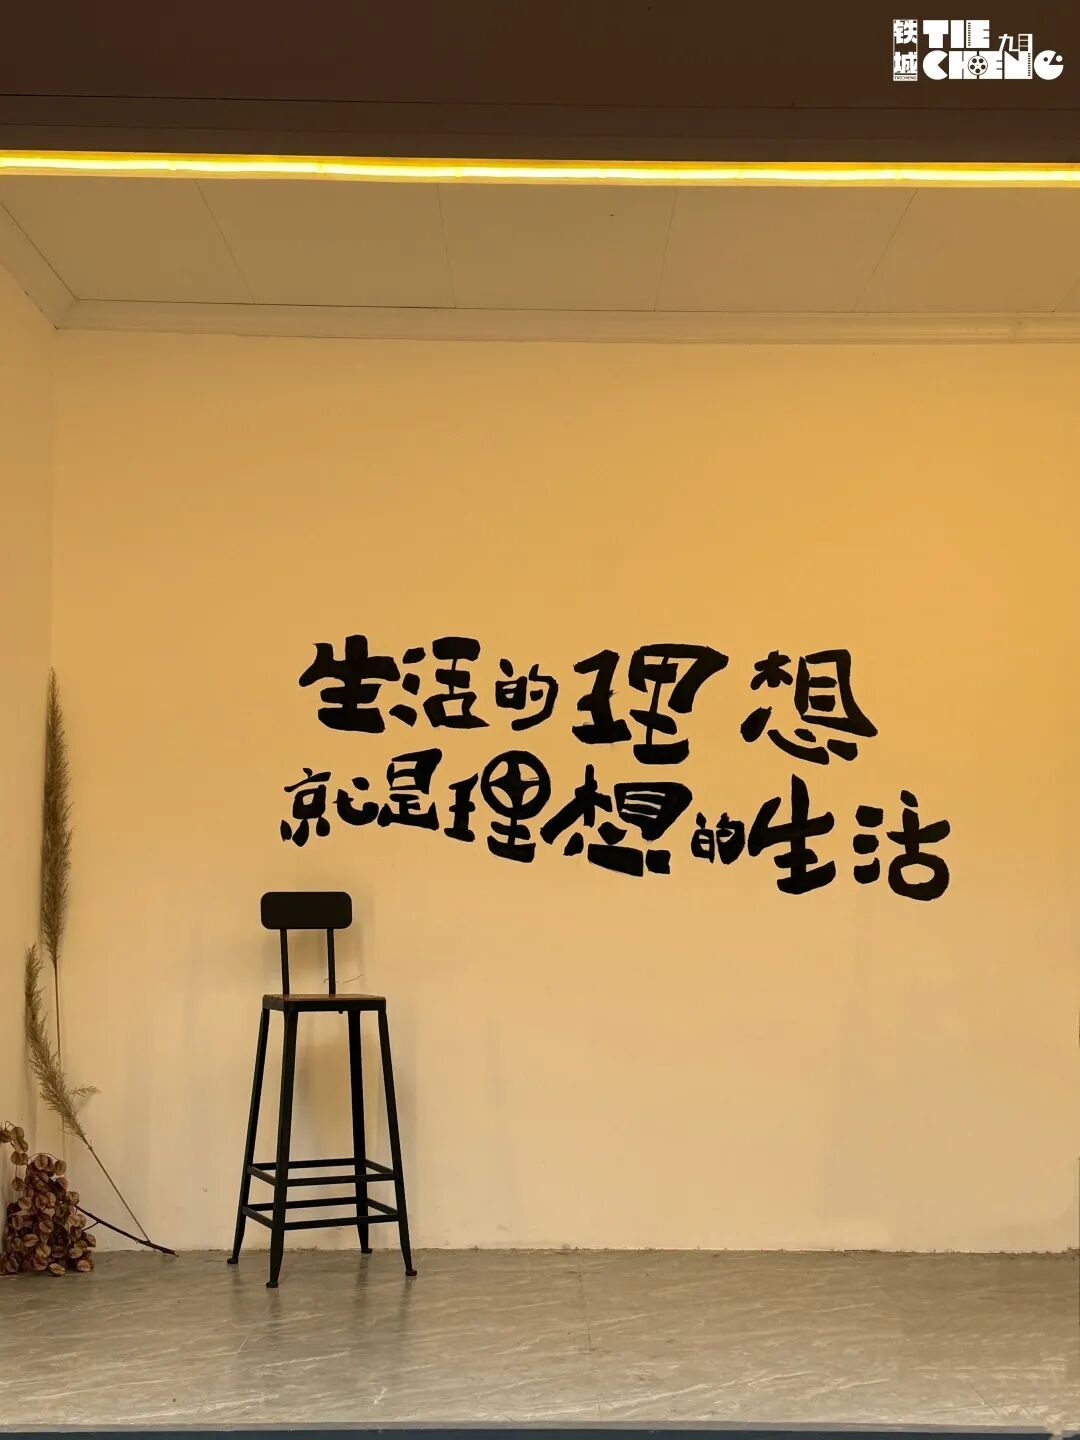 铁城
TIECHENG
TIE
CHENG
九月
生活的理想
就是理想的生活